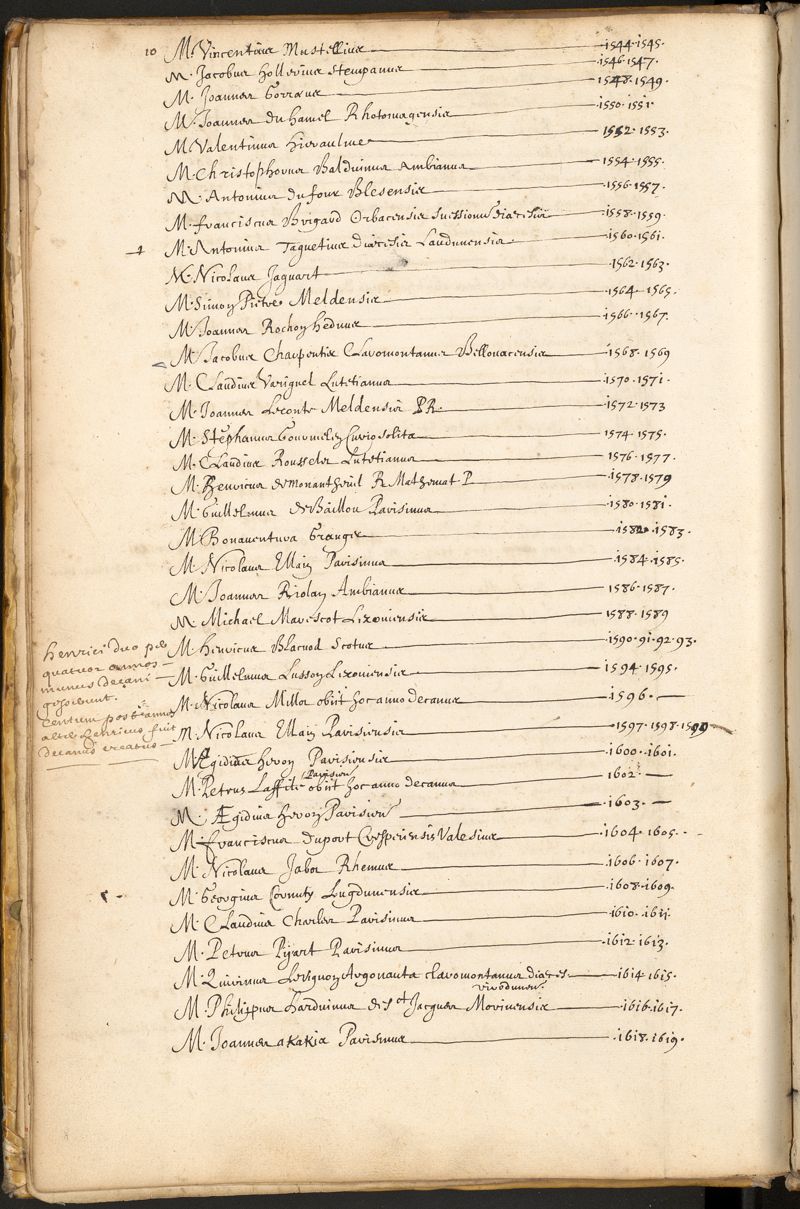 10 M. Vincentius Mustellius 1544. 1545.
M. Jacobus Hollerius Stempanus 1546. 1547.
M. Joannes Gorraeus 1548. 1549.
M. Joannes du hamel Rhotomagensis 1550. 1551.
M. Valentinus Hieraulme 1552. 1553.
M. Christophorus Balduinus Ambianus 1554. 1555.
M. Antonius du four Blesensis 1556. 1557.
M. franciscus Brigard Orbacensis 1558. 1559.
M. Antonius Taquetius diœcesis Laudunensis 1560. 1561.
M. Nicolaus Jaquart 1562. 1563.
M. Simon Pietre Meldensis 1564. 1565.
M. Joannes Rochon heduus 1566. 1567.
M. Jacobus Charpentier Claromontanus Bellovacensis 1568. 1569
M. Claudius Varignel Lutetianus 1570. 1571.
M. Joannes Leconte Meldensis P.R. 1572. 1573
M. Stephanus Gourmelen Curiosolita 1574. 1575.
M. Claudius Rousselet Lutetianus 1576. 1577.
M. Henricus de Monantheuil R Mathemat. P 1578. 1579
M. Guillelmus de Baillou Parisinus 1580. 1581.
M. Bonaventura Granger 1582. 1583.
M. Nicolaus Ellain Parisinus 1584. 1585.
M. Joannes Riolan Ambianus 1586. 1587.
M. Michael Marescot Lexoniensis 1588. 1589
M. Henricus Blacuod Scotus 1590. 91. 92. 93.
henrici duo per
quatuor annos
munus decani
gesserunt.
Centum post annos
alter henricus fuit
decanus creatus
M. Guillelmus Lusson Lexoniensis 1594. 1595.
M. Nicolaus Millot obiit hoc anno decanus 1596.
M. Nicolaus Ellain Parisiensis 1597. 1598. 1599
M. Ægidius heron Parisiensis 1600. 1601.
M. Petrus Laffilé Parisin. obiit hoc anno decanus 1602.
M. Ægidius heron Parisien 1603.
M. franciscus duport Crespeiensis Valesius 1604. 1605.
M. Nicolaus Jabot Rhemus 1606. 1607.
M. Georgius Cornuty Lugdunensis 1608. 1609.
M. Claudius Charles Parisinus 1610. 1611.
M. Petrus Pijart Parisinus 1612. 1613.
M. Quirinus Levignon Argonauta claromontanus diœces. virodunen. 1614. 1615.
M. Philippus harduinus de St. Jacques Morinensis 1616. 1617.
M. Joannes akakia Parisinus 1618. 1619.